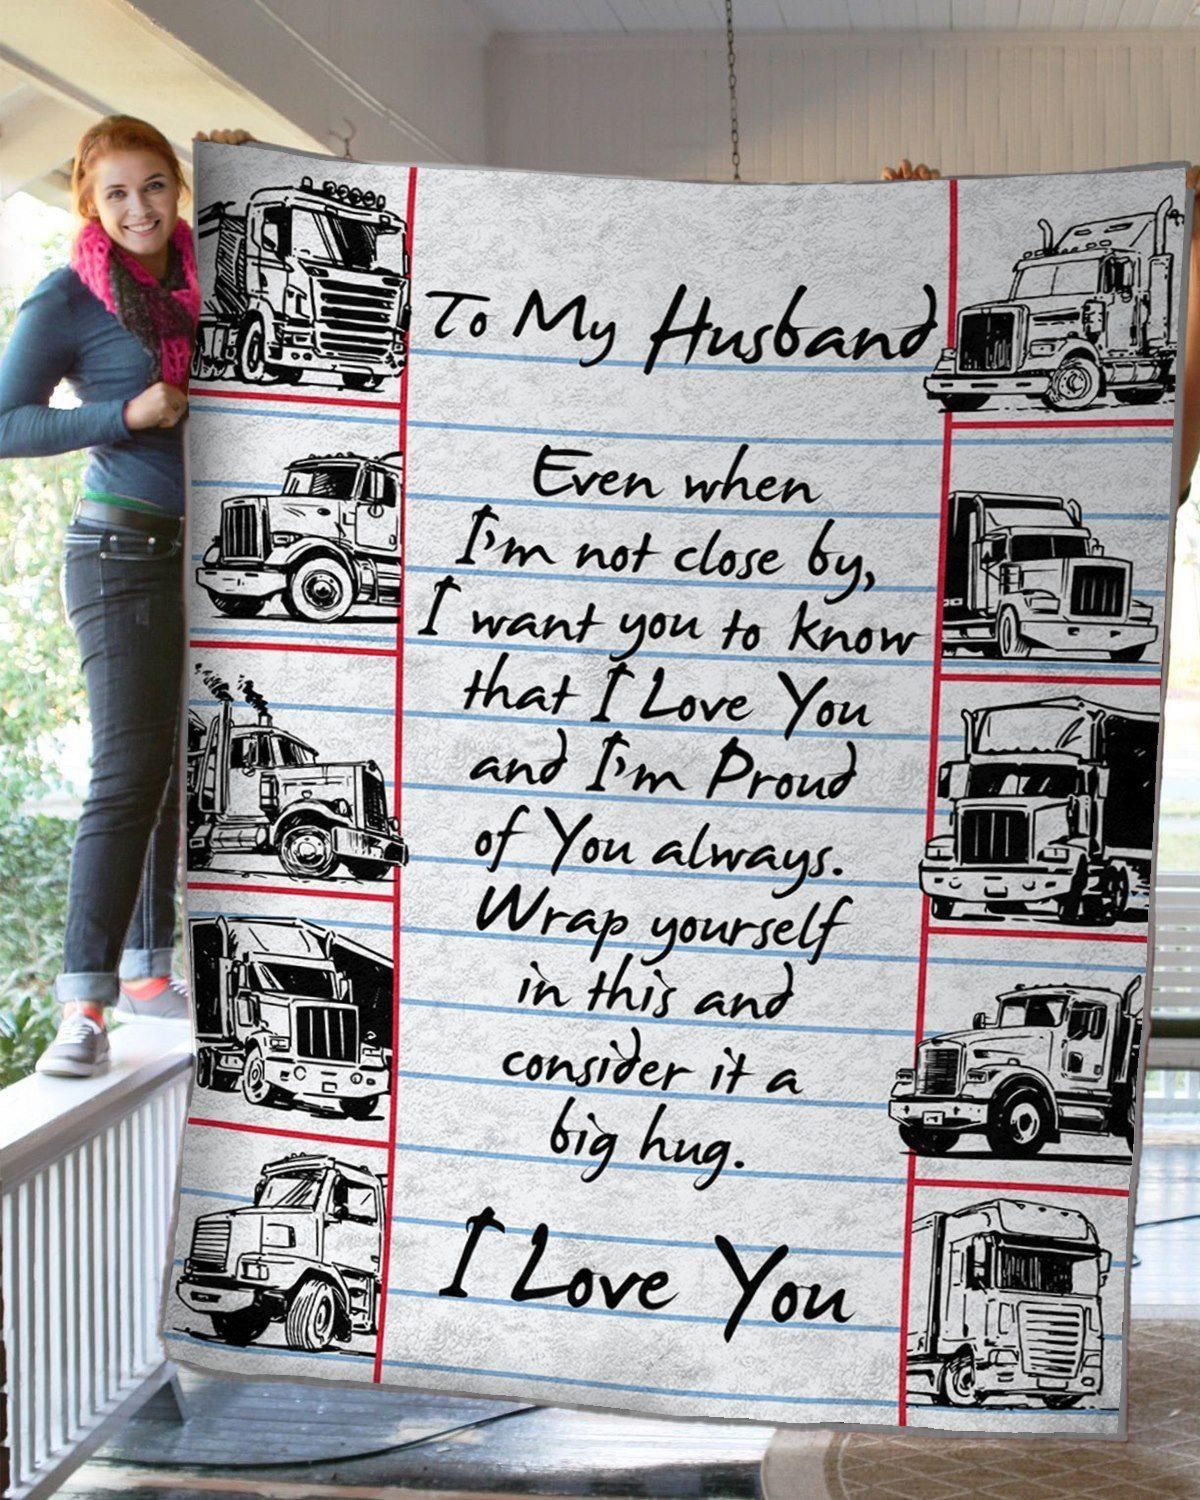 To My Husband
Even when
I'm not close by,
I want you to know
that I Love You
and I'm Proud
of You always.
Wrap yourself
in this and
consider it a
big hug.
I Love You